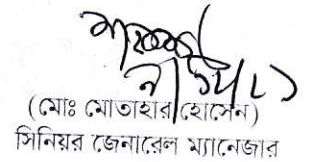 (মোঃ মোতাহার হোসেন)
সিনিয়র জেনারেল ম্যানেজার